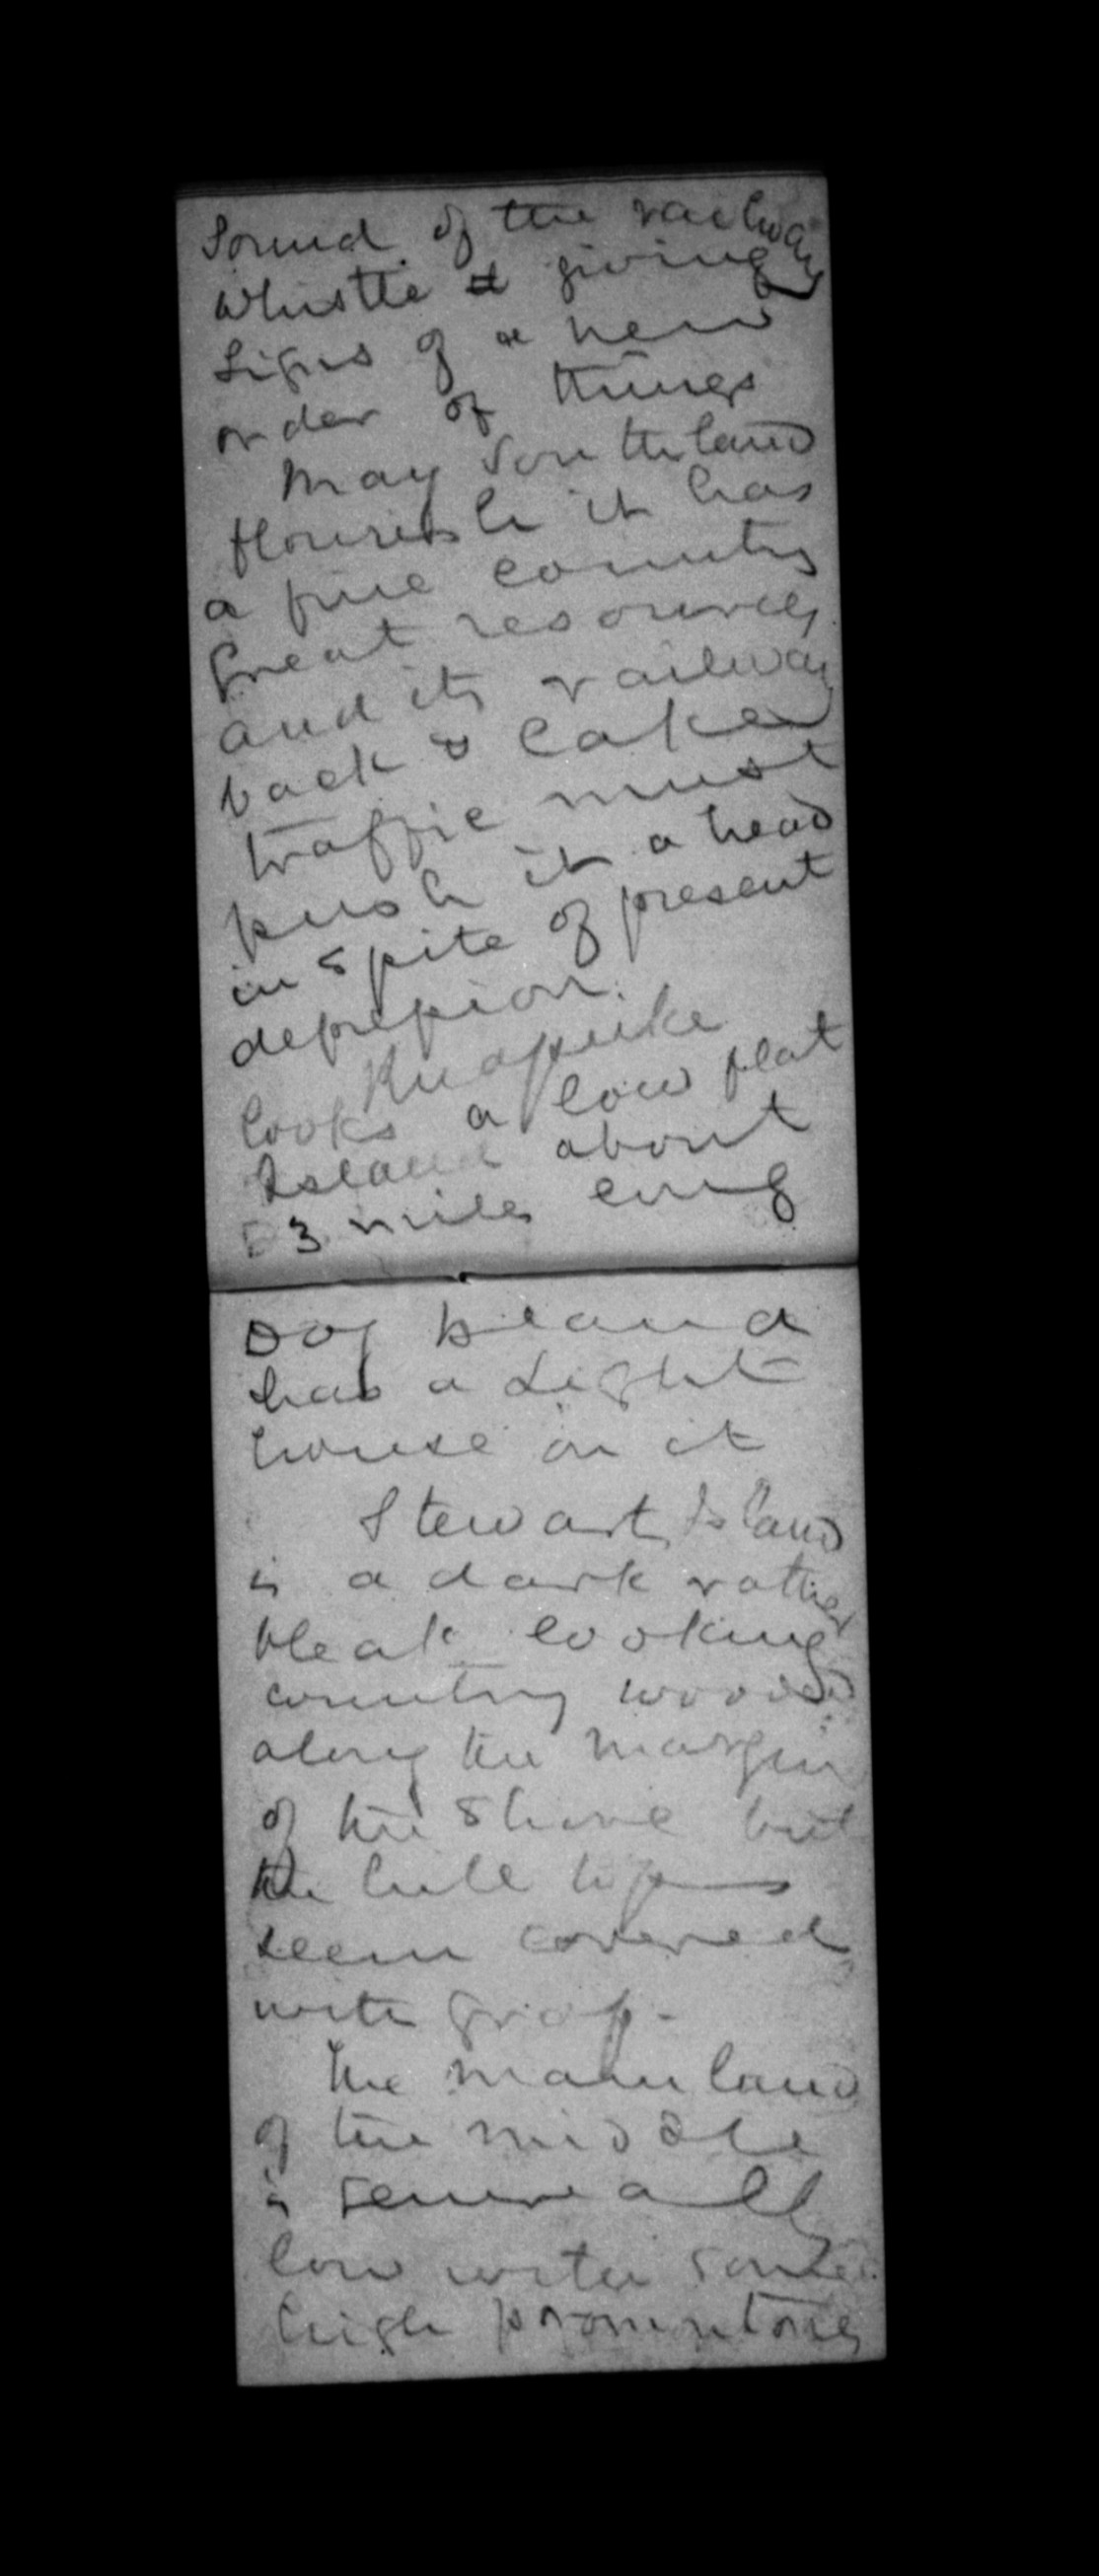 Sound of the railway
whistle & giving
signs of a new
order of things
May Southland
flourish it has
a fine country
great resources
and its railway
back & Lake
traffic must
push it ahead
in spite of present
depression.
Ruapuke
looks a low flat
Island about
3 miles long
Dog Island
has a Light
house on it
Stewart Island
is a dark rather
bleak looking
country wooded
along the margin
of the shore but
the hill tops
seem covered
with grass -
The main land
of the middle
is generally
low with some
high promontories